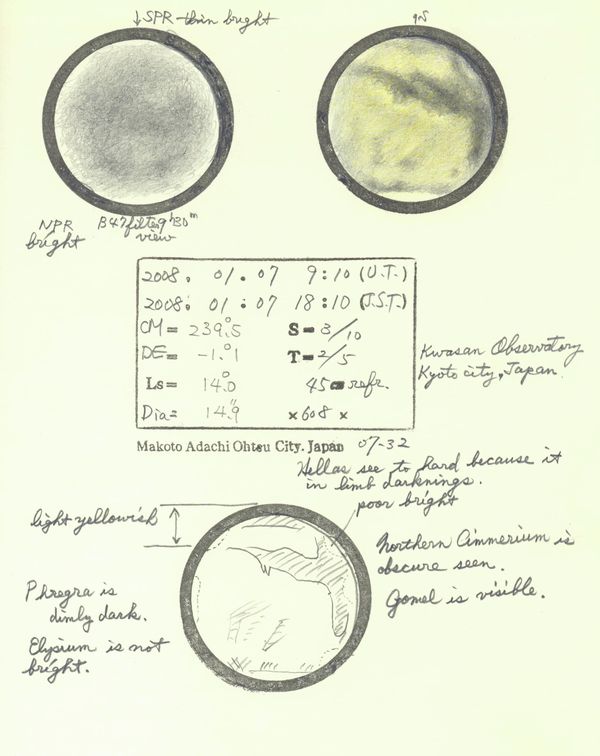 ↓SPR-thin bright
NPR
bright
B47 filter 9h30m
view
2008. 01. 07 9:10 (U.T.)
2008. 01. 07 18:10 (J.S.T.)
CM= 239°.5 S=3/10
DE= -1°.1 T=2/5
Ls= 14°.0 45cm refr.
Dia= 14".9 ×608 ×
Kwasan Observatory
Kyoto city, Japan.
Makoto Adachi Ohtsu City. Japan 07-32
Hellas see to hard because it
in limb darknings.
poor bright
light yellowish
Northern Cimmerium is
obscure seen.
Gomel is visible.
Phregra is
dimly dark.
Elysium is not
bright.